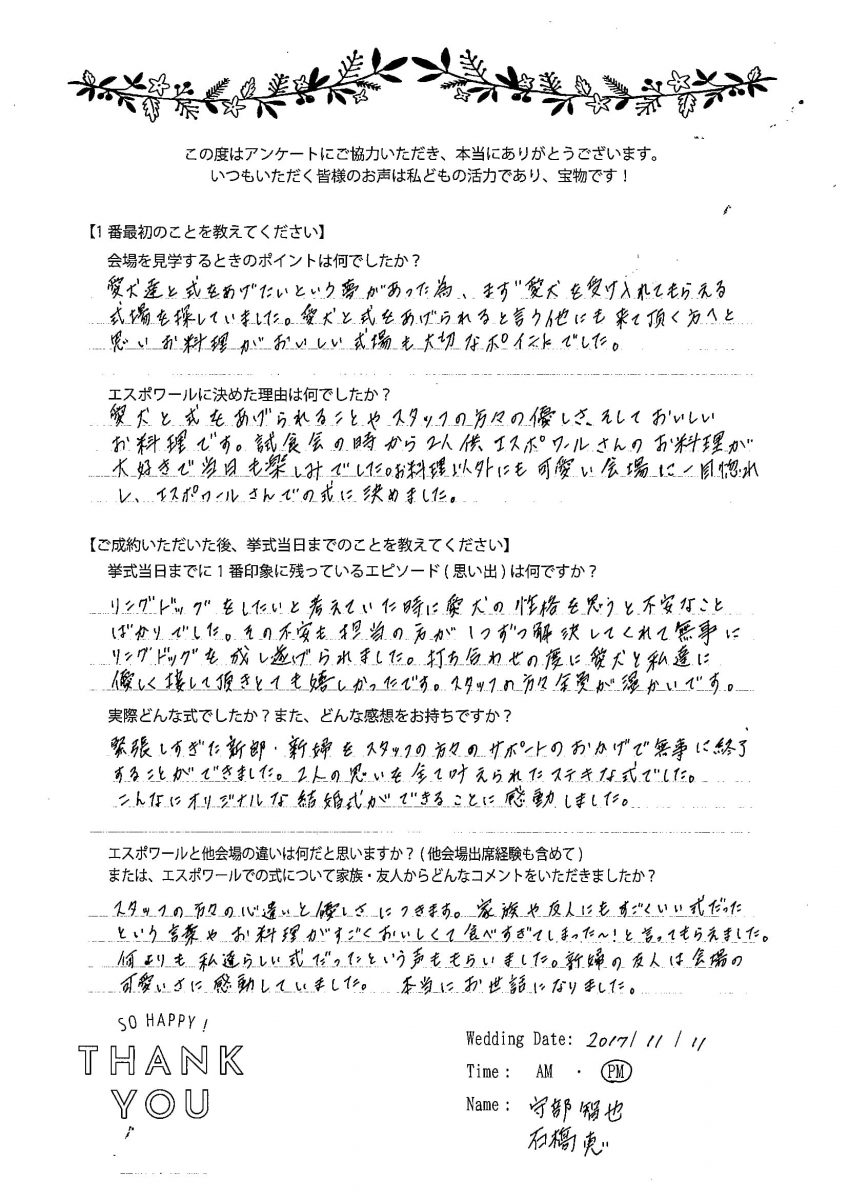 この度はアンケートにご協力いただき、本当にありがとうございます。
いつもいただく皆様のお声は私どもの活力であり、宝物です！
【1番最初のことを教えてください】
会場を見学するときのポイントは何でしたか？
愛犬達と式をあげたいという夢があった為、まず愛犬を受け入れてもらえる
式場を探していました。愛犬と式をあげられると言う他にも来て頂く方へと
思いお料理がおいしい式場も大切なポイントでした。
エスポワールに決めた理由は何でしたか？
愛犬と式をあげられることやスタッフの方々の優しさ、そしておいしい
お料理です。試食会の時から2人供、エスポワールさんのお料理が
大好きで当日も楽しみでした。お料理以外にも可愛い会場に一目惚れ
し、エスポワールさんでの式に決めました。
【ご成約いただいた後、挙式当日までのことを教えてください】
挙式当日までに1番印象に残っているエピソード(思い出)は何ですか？
リングドッグをしたいと考えていた時に愛犬の性格を思うと不安なこと
ばかりでした。その不安も担当の方が1つずつ解決してくれて無事に
リングドッグを成し遂げられました。打ち合わせの度に愛犬と私達に
優しく接して頂きとても嬉しかったです。スタッフの方々全員が温かいです。
実際どんな式でしたか？また、どんな感想をお持ちですか？
緊張しすぎた新郎・新婦をスタッフの方々のサポートのおかげで無事に終了
することができました。2人の思いを全て叶えられたステキな式でした。
こんなにオリジナルな結婚式ができることに感動しました。
エスポワールと他会場の違いは何だと思いますか？(他会場出席経験も含めて)
または、エスポワールでの式について家族・友人からどんなコメントをいただきましたか？
スタッフの方々の心遣いと優しさにつきます。家族や友人にもすごくいい式だった
という言葉やお料理がすごくおいしくて食べすぎてしまった〜！と言ってもらえました。
何よりも私達らしい式だったという声ももらいました。新婦の友人は会場の
可愛いさに感動していました。 本当にお世話になりました。
SO HAPPY!
THANK
YOU
Wedding Date: 2017/11/11
Time: AM ・ PM
Name: 守部 智也
石橋 恵